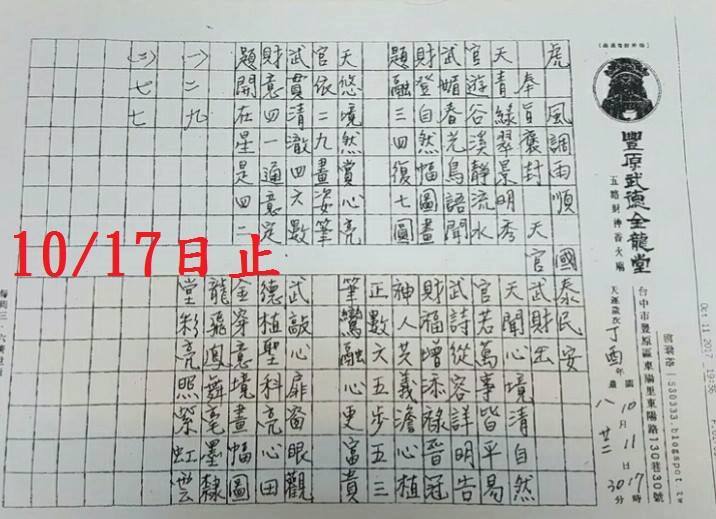 豐原武德金龍堂
五路財神香火廟
台中市豐原區東陽里東陽路130巷30號
530333.blogspot.tw
天運歲次丁酉年
國10月11日17時30分
農八廿二
虎風調雨順國泰民安
奉旨褒封天官武財
天青綠翠景明秀
官遊谷溪靜流水
武媚春光鳥語聞
財登自然幅圖畫
題融三四復七圓
天聞心境清自然
官若萬事皆平易
武詩從容詳明告
財福增添祿晉冠
神人共義澹心植
正數六五步五三
筆鸞融心更富貴
天悠境然賞心亮
官依二九畫姿筆
武貫清澈四六數
財意四一通意定
題開在星是四二
武敲心扉啻眼觀
德植聖科亮心田
金穿意境畫幅圖
龍飛鳳舞毫墨隸
堂彩亮照紫虹雲
(一)二九
(二)七七
10/17日止